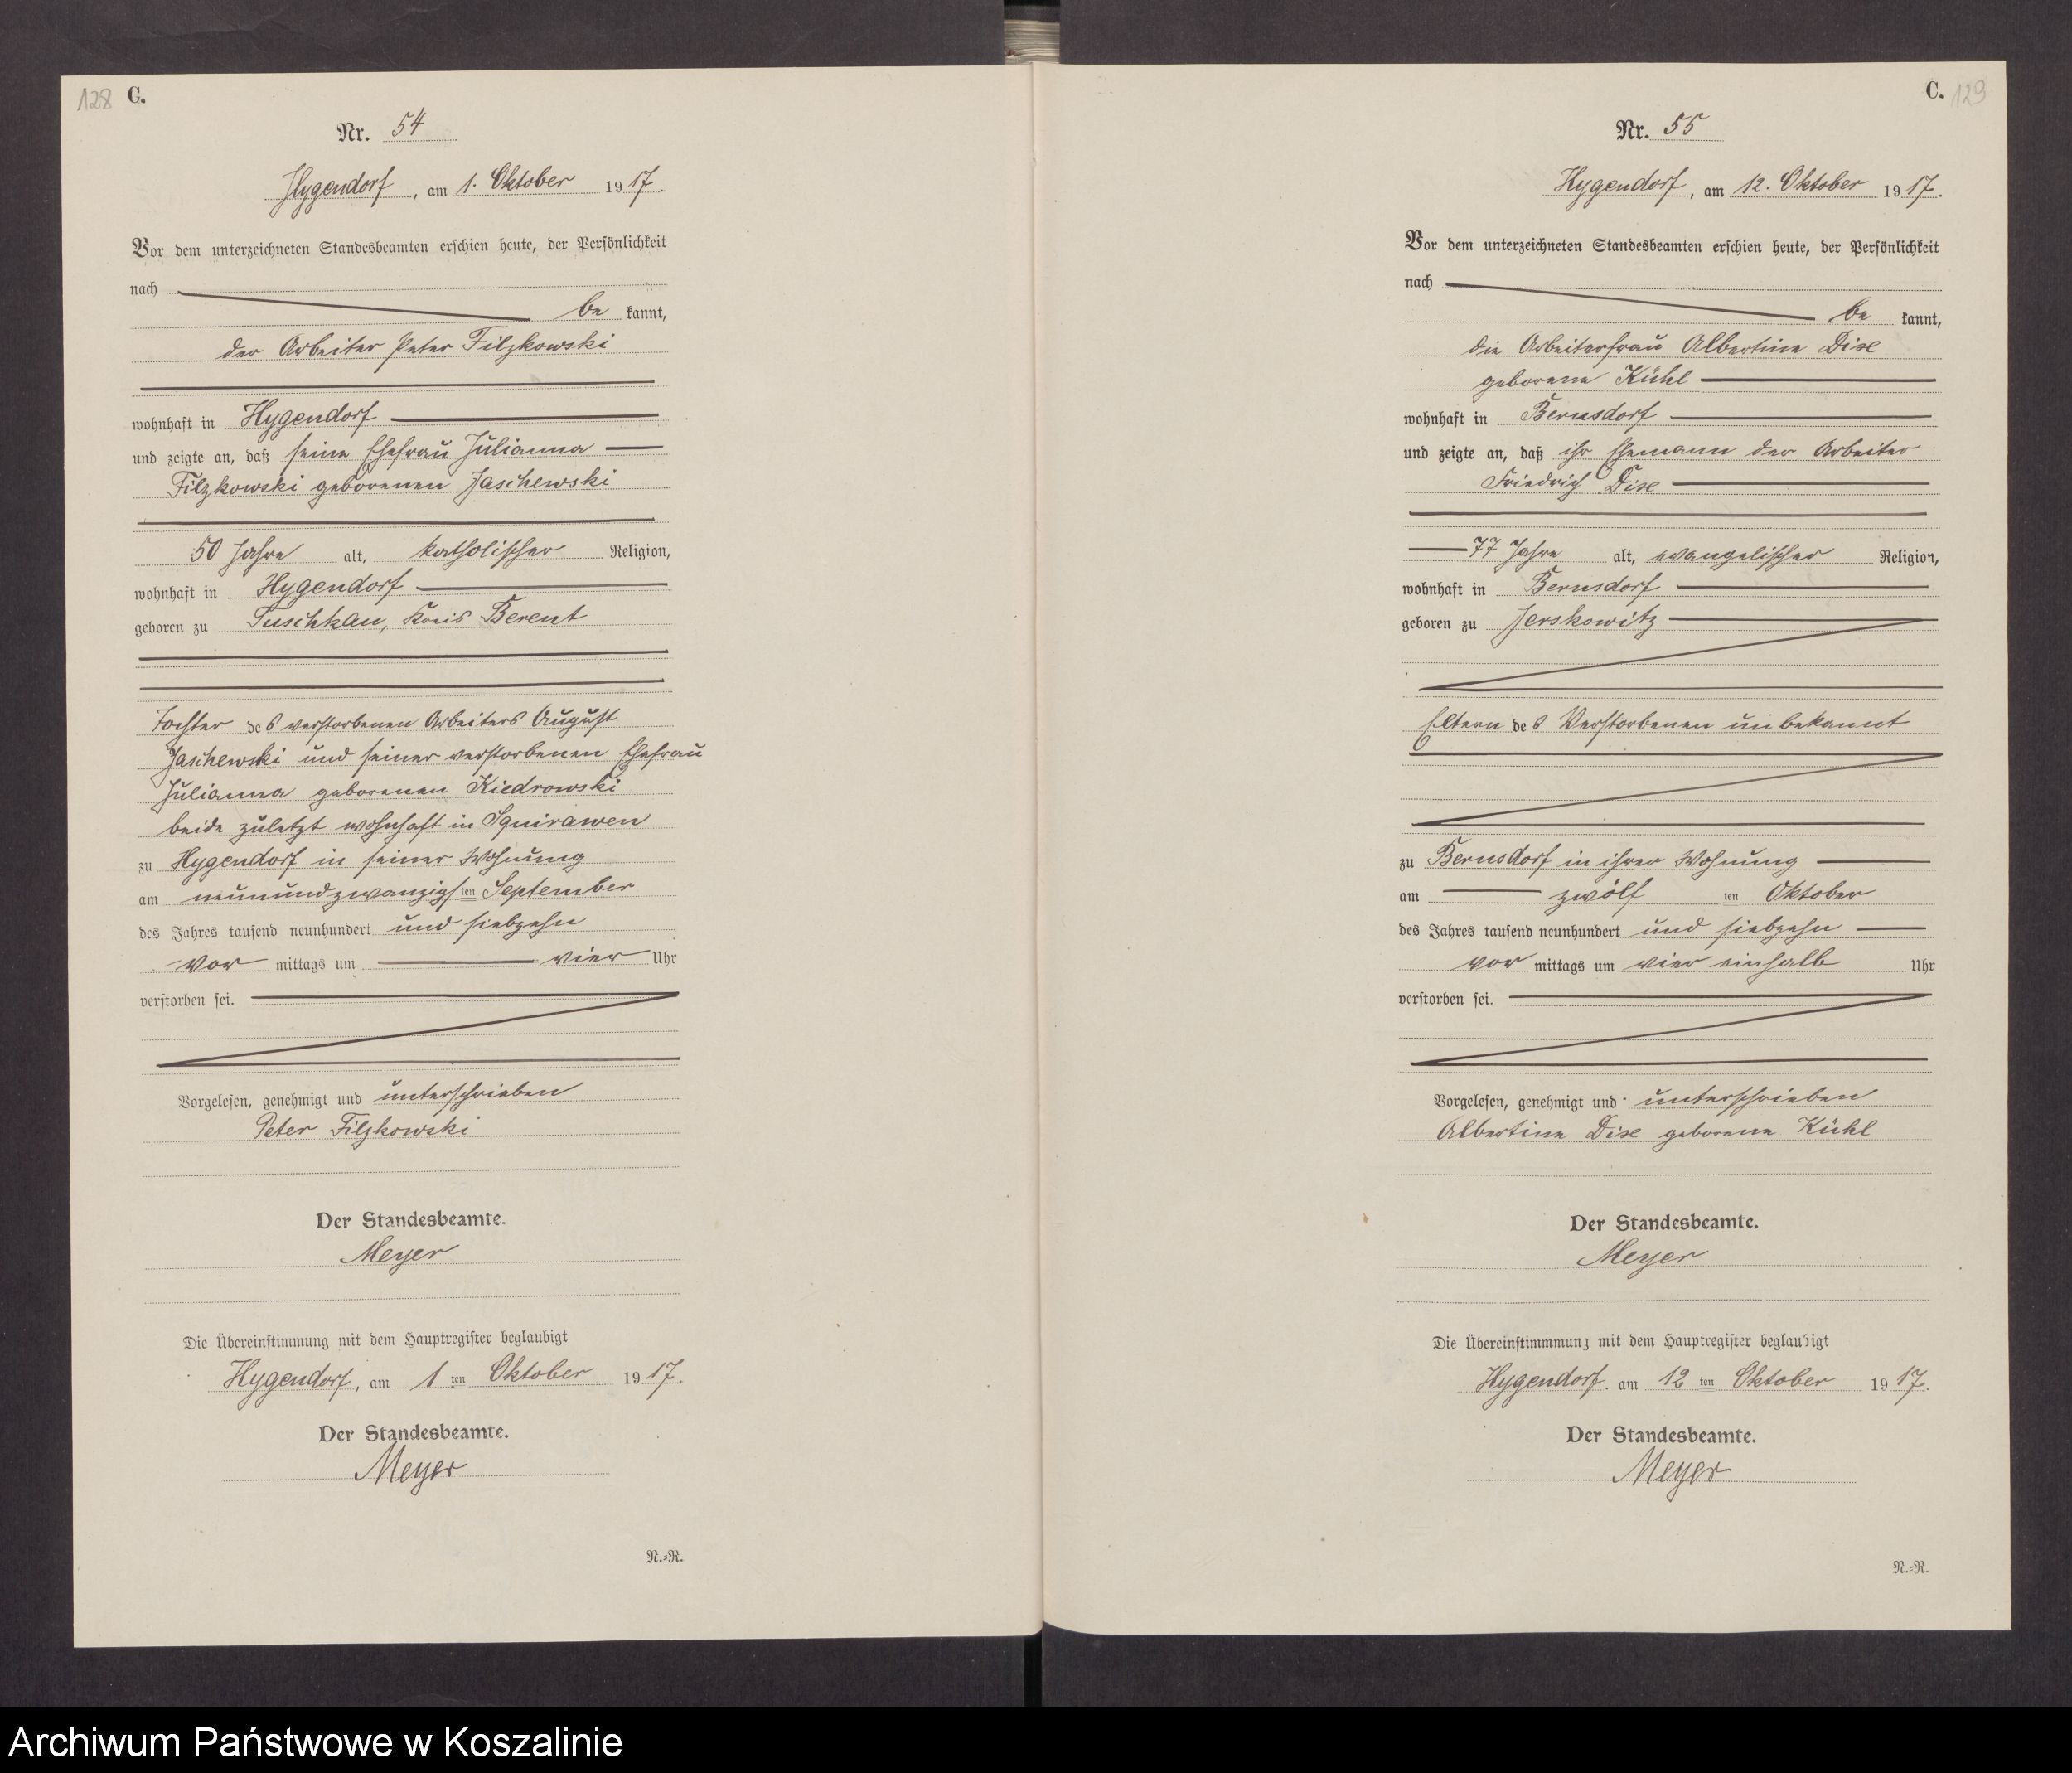 128 C.
Nr. 54
Hygendorf, am 1. Oktober 1917.
Vor dem unterzeichneten Standesbeamten erschien heute, der Persönlichkeit
nach
be kannt,
der Arbeiter Peter Filzkowski
wohnhaft in Hygendorf
und zeigte an, daß seine Ehefrau Julianna
Filzkowski geborenen Jaschewski
50 Jahre alt, katholischer Religion,
wohnhaft in Hygendorf
geboren zu Tuschkau, Kreis Berent
Tochter des verstorbenen Arbeiters August
Jaschewski und seiner verstorbenen Ehefrau
Julianna geborenen Kiedrowski
beide zuletzt wohnhaft in Squirawen
zu Hygendorf in seiner Wohnung
am neunundzwanzigsten September
des Jahres tausend neunhundert und siebzehn
vor mittags um vier Uhr
verstorben sei.
Vorgelesen, genehmigt und unterschrieben
Peter Filzkowski
Der Standesbeamte.
Meyer
Die Übereinstimmung mit dem Hauptregister beglaubigt
Hygendorf, am 1 ten Oktober 1917.
Der Standesbeamte.
Meyer
N.=R.
C. 129
Nr. 55
Hygendorf, am 12. Oktober 1917.
Vor dem unterzeichneten Standesbeamten erschien heute, der Persönlichkeit
nach
be kannt,
die Arbeiterfrau Albertine Dise
geborene Kühl
wohnhaft in Bernsdorf
und zeigte an, daß ihr Ehemann der Arbeiter
Friedrich Dise
77 Jahre alt, evangelischer Religion,
wohnhaft in Bernsdorf
geboren zu Jerskowitz
Eltern des Verstorbenen unbekannt
zu Bernsdorf in ihrer Wohnung
am zwölf ten Oktober
des Jahres tausend neunhundert und siebzehn
vor mittags um vier einhalb Uhr
verstorben sei.
Vorgelesen, genehmigt und unterschrieben
Albertine Dise geborene Kühl
Der Standesbeamte.
Meyer
Die Übereinstimmmung mit dem Hauptregister beglaubigt
Hygendorf. am 12 ten Oktober 1917.
Der Standesbeamte.
Meyer
N.=R.
Archiwum Państwowe w Koszalinie